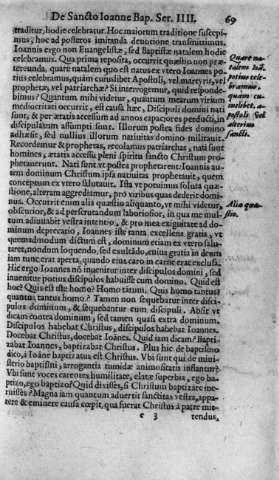 De Sancto Ioanne Bap. Ser. IIII. 69
traditur, hodie celebratur. Hoc maiorum traditione suscepi-
mus, hoc ad posteros imitanda deuotione transmittimus.
Ioannis ergo non Euangelistæ, sed Baptistæ natalem hodie
celebramus. Qua proposita re, occurrit quæstio non præ-
tereunda, quare natalem quo est ex vtero Ioannes po-
tius celebramus, quàm cuiuslibet Apostoli, vel martyris, vel
prophetæ, vel patriarchæ? Si interrogemur, quid responde-
bimus? Quantum mihi videtur, quantum meatum virium
mediocritati occurrit, est causa hæc, Discipuli domini nati
sunt, & per ætatis accessum ad annos capaciores perducti, in
discipulatum assumpti sunt. Illorum postea fides domino
adhæsit, sed nullius illorum natiuitas domino militauit.
Recordemur & prophetas, recolamus patriarchas, nati sunt
homines, ætatis accessu pleni Spiritu sancto Christum pro-
phetauerunt. Nati sunt vt postea prophetarent: Ioannis au-
tem dominum Christum ipsa natiuitas prophetauit, quem
conceptum ex vtero salutauit. Ista vt potuimus soluta quæ-
stione, alteram aggrediemur, pro viribus quas dederit domi-
nus. Occurrit enim alia quæstio aliquanto, vt mihi videtur,
obscurior, & ad perscrutandum laboriosior, in qua me mul-
tum adiuuabit vestra intentio, & pro mea exiguitate ad do-
minum deprecatio, Ioannes iste tanta excellens gratia, vt
quemadmodum dictum est, dominum etiam ex vtero saluta-
ret, nondum loquendo, sed exultando, cuius gratia in deum
iam tunc erat aperta, quando eius caro in carne erat inclusa:
Hic ergo Ioannes nō inuenitur inter discipulos domini, sed
inuenitur potius discipulos habuisse cum domino. Quid est
hoc? Quis est iste homo? Homo tantus. Quis homo tantus?
quantus tantus homo? Tamen non sequebatur inter disci-
pulos dominum, & sequebantur eum discipuli. Absit vt
dicam contra dominum, sed tamen quasi extra dominum.
Discipulos habebat Christus, discipulos habebat Ioannes.
Docebat Christus, docebat Ioānes. Quid iam dicam? Bapti-
zabat Ioannes, baptizabat Christus. Plus hic de baptismo
dicā, à Ioāne baptizatus est Christus. Vbi sunt qui de mini-
sterio baptismi, arrogantia tumidæ animositatis inflantur?
Vbi sunt voces carentes humilitate, elatæ superbia, ego ba-
ptizo, ego baptizo? Quid diuisses, si Christum baptizare me-
ruisses? Magna iam quantum aduertit sanctitas vestra, appa-
rere & eminere causa cœpit, qua fuerat Christus à patre mit-
e 3 tendus,
Quare na-
talem Ioā.
potius cele-
bramus,
quàm cu-
iuslibet a-
postoli vel
alterius
sancti.
Alia quæ-
stio.